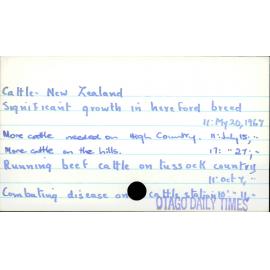 Cattle - New Zealand
Significant growth in hereford breed
11: My 20, 1967
More cattle needed on High Country. 11: July 15, "
More cattle on the hills. 17: " 27, "
Running beef cattle on tussock country
11: Oct 7, "
Combating disease on cattle station 10: " 11, "
OTAGO DAILY TIMES